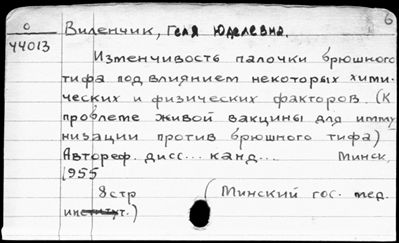 6
О
У4013
Виленчик, Геля Юделевна.
Изменчивость палочки брюшного
тифа под влиянием некоторых хими-
ческих и физических факторов. (К
проблеме живой вакцины для имму
низации против брюшного тифа)
Автореф. дисс... канд... Минск,
1955
8стр (Минский гос. мед.
институт.)